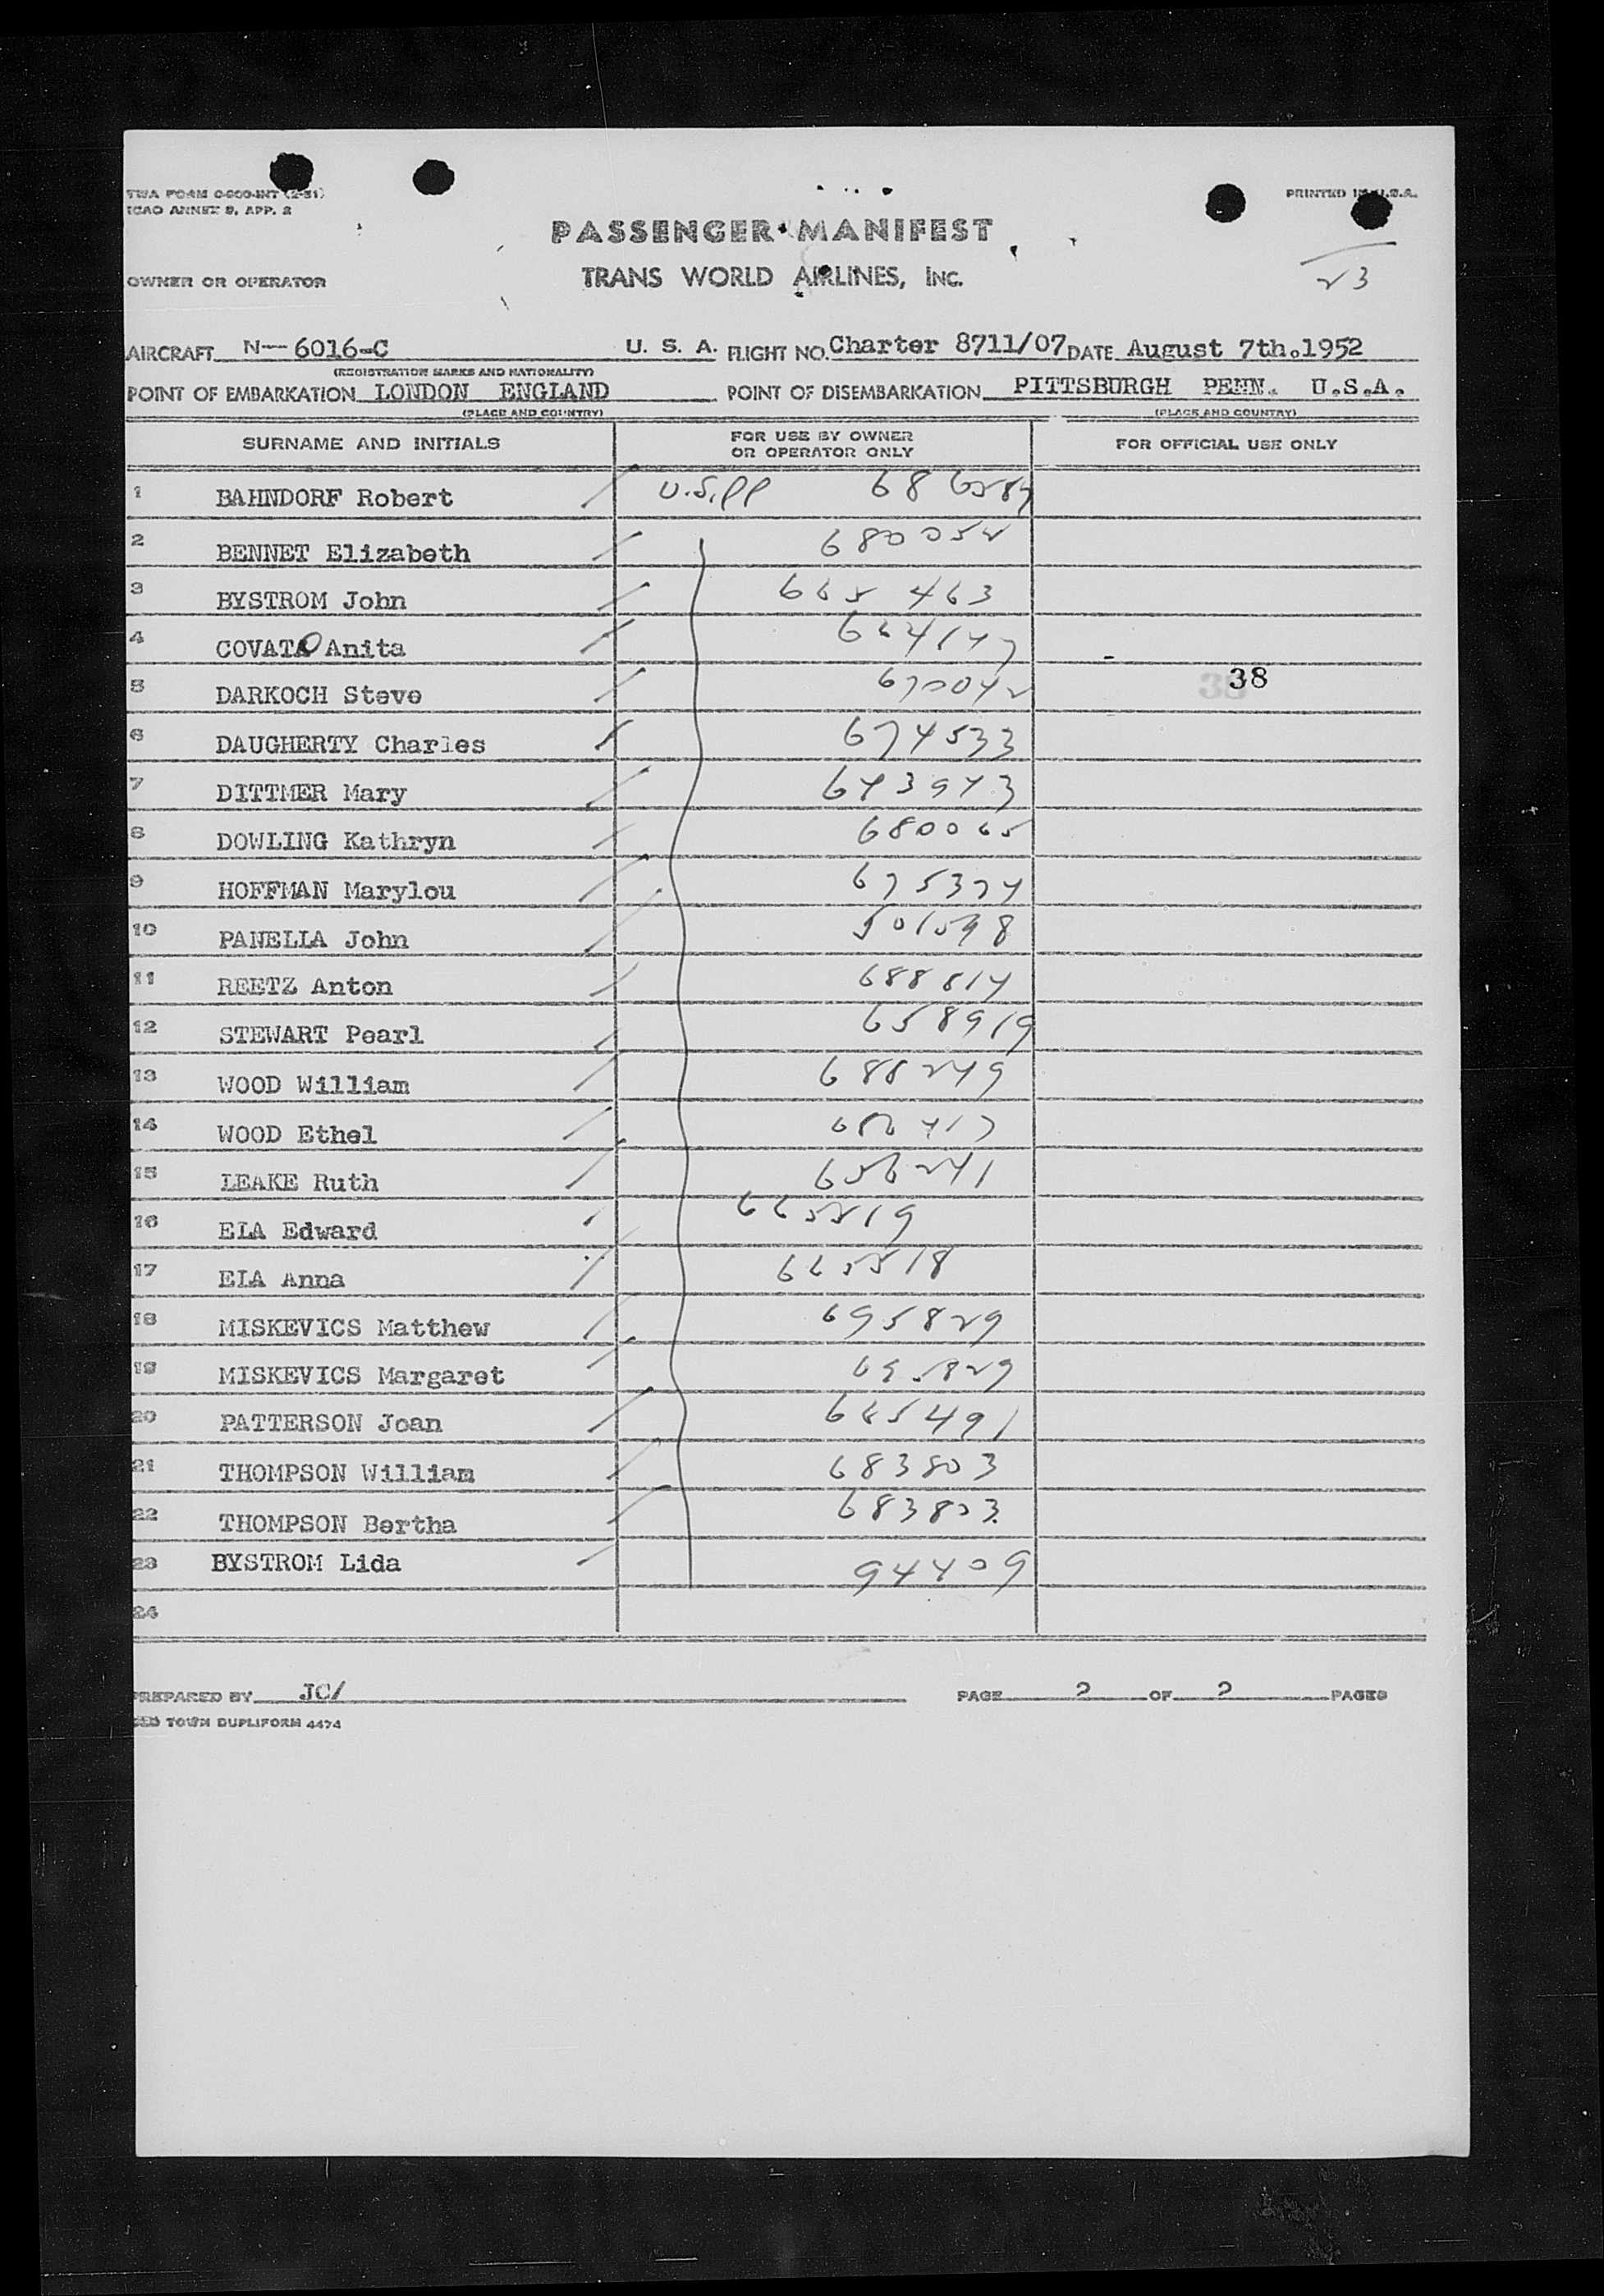 TWA FORM O-900-INT (2-51)
ICAO ANNEX 9, APP. 2
PRINTED IN U.S.A.
PASSENGER MANIFEST
OWNER OR OPERATOR TRANS WORLD AIRLINES, INC.
23
AIRCRAFT N-- 6016-C U. S. A. FLIGHT NO. Charter 8711/07 DATE August 7th.1952
(REGISTRATION MARKS AND NATIONALITY)
POINT OF EMBARKATION LONDON ENGLAND POINT OF DISEMBARKATION PITTSBURGH PENN. U.S.A.
(PLACE AND COUNTRY) (PLACE AND COUNTRY)
SURNAME AND INITIALS FOR USE BY OWNER OR OPERATOR ONLY FOR OFFICIAL USE ONLY
1 BAHNDORF Robert U.S.PP
2 BENNET Elizabeth 680052
3 BYSTROM John 665 463
4 COVATO Anita
5 DARKOCH Steve 670042 38
6 DAUGHERTY Charles 674533
7 DITTMER Mary 643943
8 DOWLING Kathryn 680065
9 HOFFMAN Marylou 675374
10 PANELLA John 501598
11 REETZ Anton 688814
12 STEWART Pearl 658919
13 WOOD William 688249
14 WOOD Ethel
15 LEAKE Ruth 656241
16 ELA Edward 665519
17 ELA Anna 665518
18 MISKEVICS Matthew 695829
19 MISKEVICS Margaret 695829
20 PATTERSON Joan 665491
21 THOMPSON William 683803
22 THOMPSON Bertha 683803
23 BYSTROM Lida 94409
24
PREPARED BY JC/ PAGE 2 OF 2 PAGES
TOWN DUPLIFORM 4474